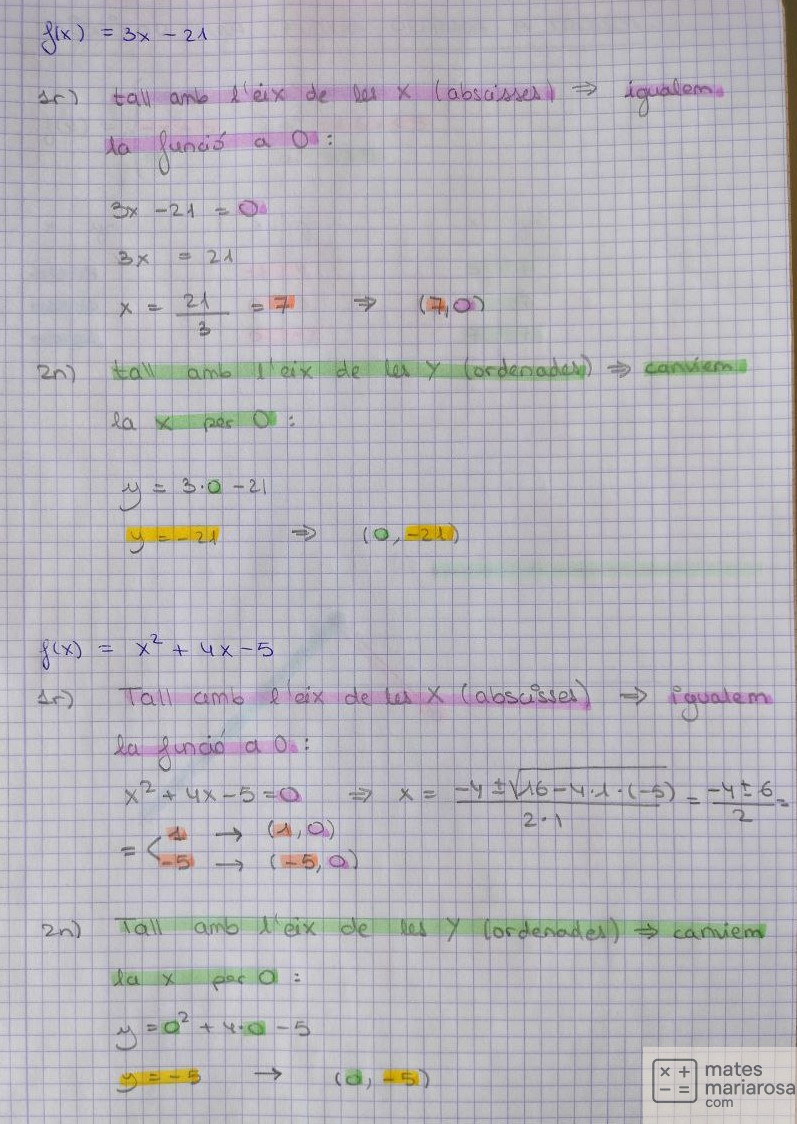 f(x) = 3x - 21
1r) tall amb l'eix de les X (abscisses) ⇒ igualem
la funció a 0 :
3x - 21 = 0
3x = 21
x = 21/3 = 7 ⇒ (7,0)
2n) tall amb l'eix de les Y (ordenades) ⇒ canviem
la x per 0 :
y = 3·0 - 21
y = -21 ⇒ (0, -21)
f(x) = x² + 4x - 5
1r) Tall amb l'eix de les X (abscisses) ⇒ igualem
la funció a 0 :
x² + 4x - 5 = 0 ⇒ x = (-4 ± √(16 - 4·1·(-5)))/(2·1) = (-4 ± 6)/2 =
= < 1 → (1, 0)
-5 → (-5, 0)
2n) Tall amb l'eix de les Y (ordenades) ⇒ canviem
la x per 0 :
y = 0² + 4·0 - 5
y = -5 → (0, -5)
× + - =
mates
mariarosa
com